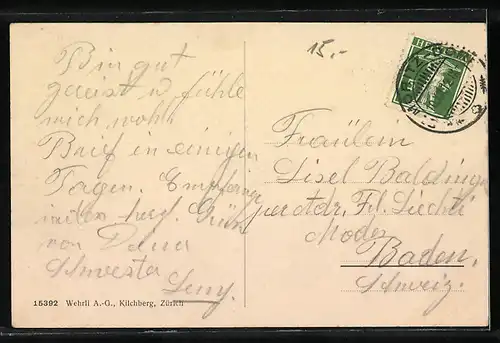 15.-
HELVETIA
Bin gut
gereist u fühle
mich wohl.
Brief in einigen
Tagen. Empfange
indes herzl. Grüße
von Deiner
Schwester
Leny.
Fräulein
Lisel Baldinger
per Adr. Frl. Liechti
Modes
Baden.
Schweiz.
15392 Wehrli A.-G., Kilchberg, Zürich